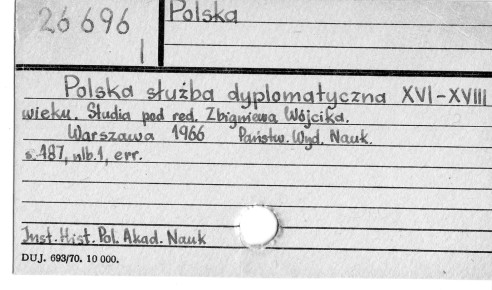 26 696
I
Polska
Polska służba dyplomatyczna XVI-XVIII
wieku. Studia pod red. Zbigniewa Wójcika.
Warszawa 1966 Państw. Wyd. Nauk.
s. 487, nlb. 1, err.
Inst. Hist. Pol. Akad. Nauk
DUJ. 693/70. 10 000.